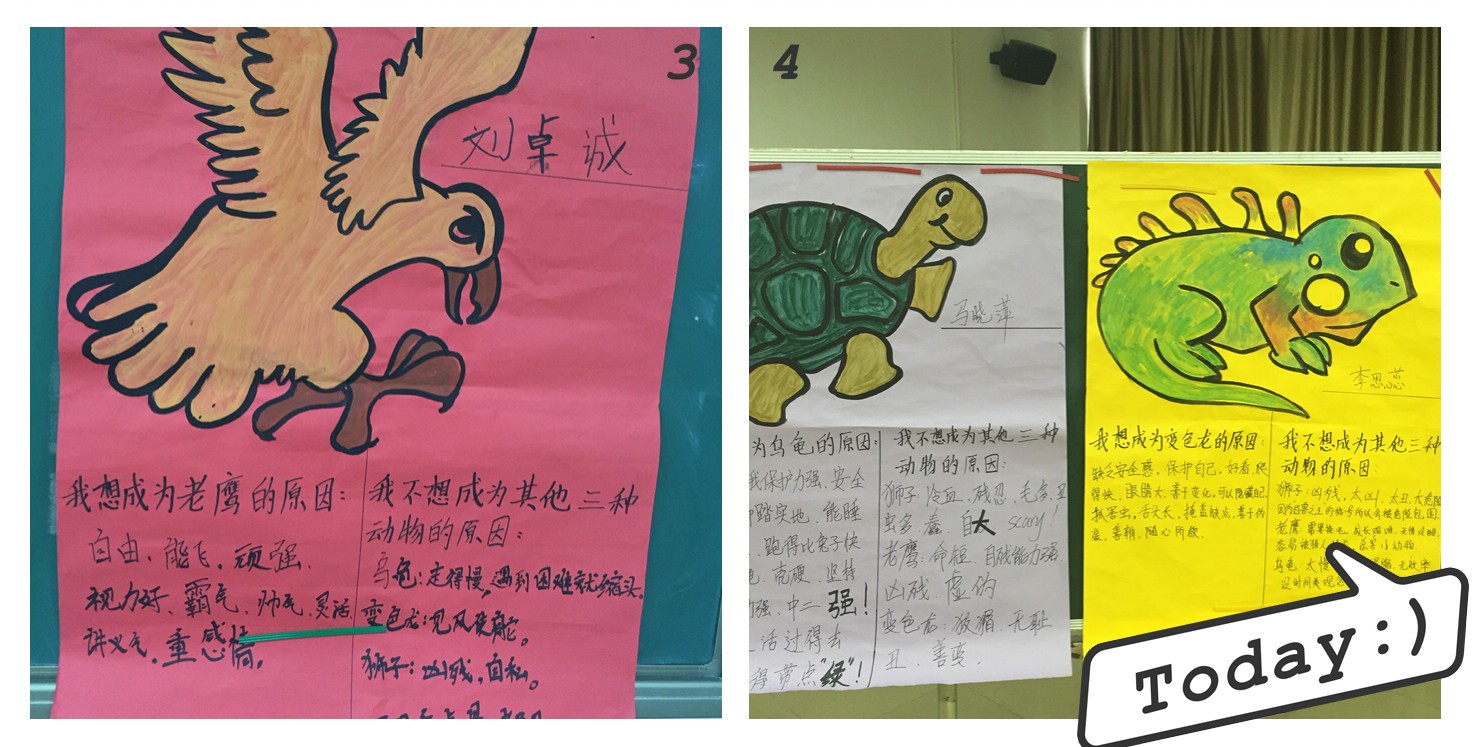 3
刘桌诚
我想成为老鹰的原因:
自由、能飞、顽强、
视力好、霸气、帅气、灵活
讲义气、重感情。
我不想成为其他三种
动物的原因:
乌龟:走得慢,遇到困难就缩头。
变色龙:见风使舵。
狮子:凶残,自私。
4
马晓萍
为乌龟的原因:
我保护力强、安全
踏实地、能睡
跑得比兔子快
壳硬、坚持
强、中二 强!
活过得去
得带点"绿"!
我不想成为其他三种
动物的原因:
狮子:冷血、残忍、毛多、丑
虫多、蠢、自大 scary!
老鹰:命短、自残能力强
凶残、虚伪
变色龙:无耻
丑、善变、
李思蕊
我想成为变色龙的原因:
缺乏安全感,保护自己,好看,爬
得快、眼睛大、善于变化,可以隐藏自己
抓害虫,舌头长,掩盖缺点,善于伪
装,善稍,随心所欲。
我不想成为其他三种
动物的原因
狮子:凶残,太凶,太丑,太危险
因为百兽之王的称号所以会被危险包围。
老鹰
杀害小动物
乌龟 太慢
没时间观念
Today:)